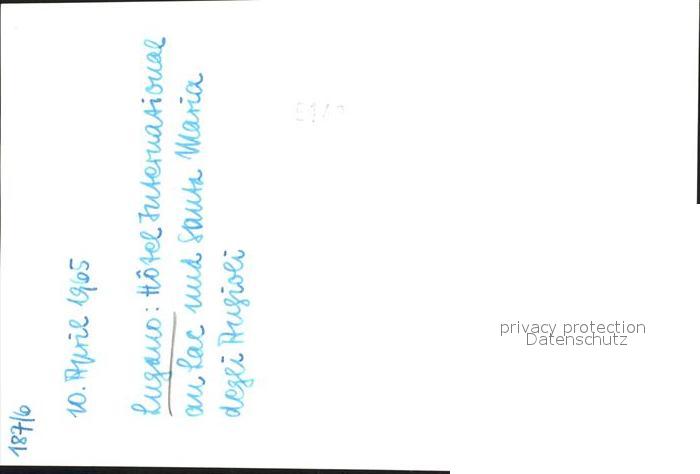 187/6
10. April 1965
Lugano: Hôtel International
au Lac und Santa Maria
degei Angioli
privacy protection
Datenschutz